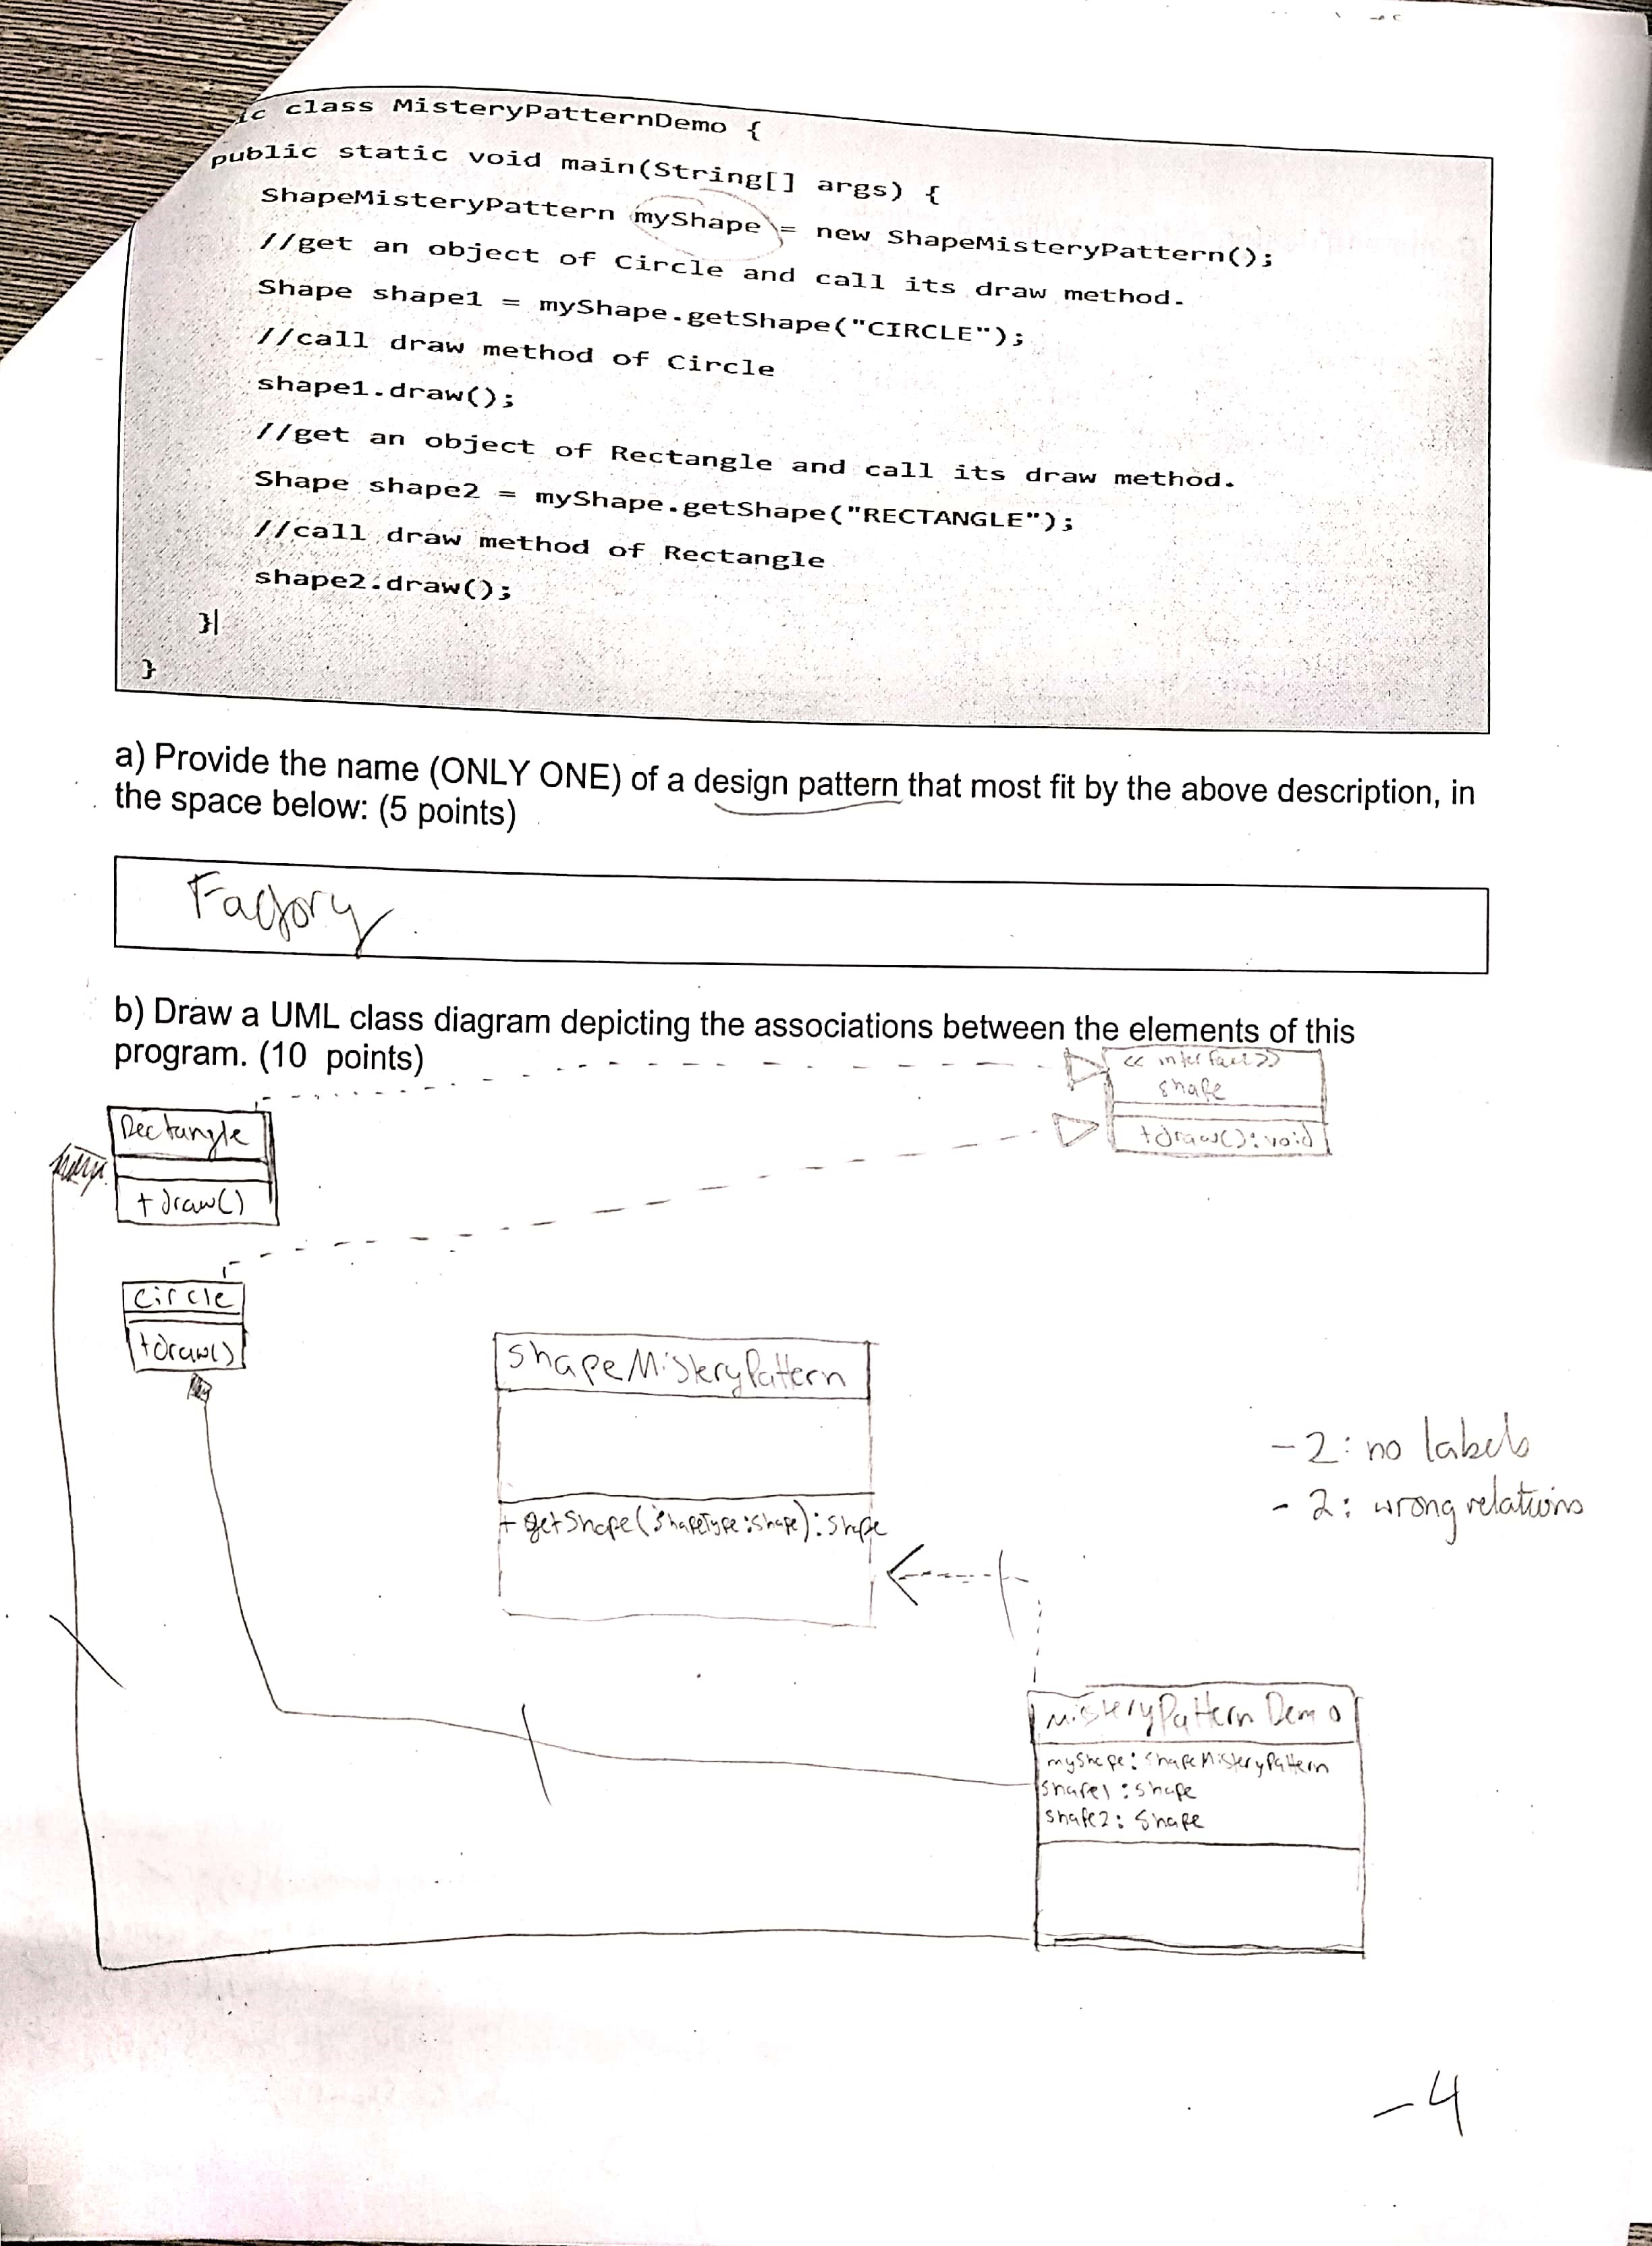 ic class MisteryPatternDemo {
public static void main(String[] args) {
ShapeMisteryPattern myShape = new ShapeMisteryPattern();
//get an object of Circle and call its draw method.
Shape shape1 = myShape.getShape("CIRCLE");
//call draw method of Circle
shape1.draw();
//get an object of Rectangle and call its draw method.
Shape shape2 = myShape.getShape("RECTANGLE");
//call draw method of Rectangle
shape2.draw();
}|
}
a) Provide the name (ONLY ONE) of a design pattern that most fit by the above description, in
the space below: (5 points)
Factory
b) Draw a UML class diagram depicting the associations between the elements of this
program. (10 points)
<< interface>>
shape
+draw():void
Rectangle
+draw()
circle
+draw()
shapeMisteryPattern
+ getShape(shapeType:shape):shape
-2: no labels
-2: wrong relations
MisteryPattern Demo
myShape: shapeMisteryPattern
shape1: shape
shape2: shape
-4